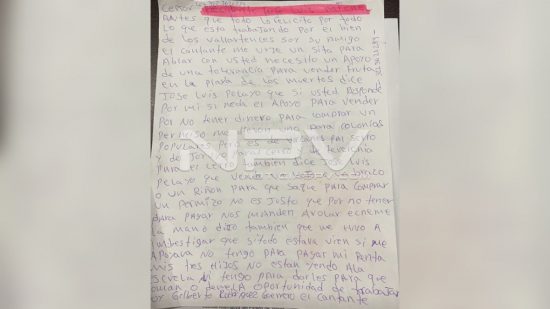 Antes que todo lo felicito por todo
lo que esta trabajando por el bien
de los vallartenses soy su amigo
el cantante me urge un sita para
Ablar con usted necesito un Apoyo
de una tolerancia para vender fruta
en la plaza de los muertos dice
Jose Luis Pelayo que si usted Responde
Por mi si me da el Apoyo para vender
Por no tener dinero para comprar un
permiso me dieron uno para colonias
populares pero es de
y de
para el cerro tambien dice Jose Luis
Pelayo que venda un brazo
o un Riñon para que saque para comprar
un permizo no es Justo que por no tener
para pagar nos manden Avolar echeme
la mano dijo tambien que me tuvo A
investigar que si todo estava vien si me
Apoyava no tengo para pagar mi Renta
mis tres Hijos no estan yendo Ala
escuela no tengo para darles para que
oportunidad de trabajar
soy Gilberto Rodriguez Guerrero el cantante
NPV